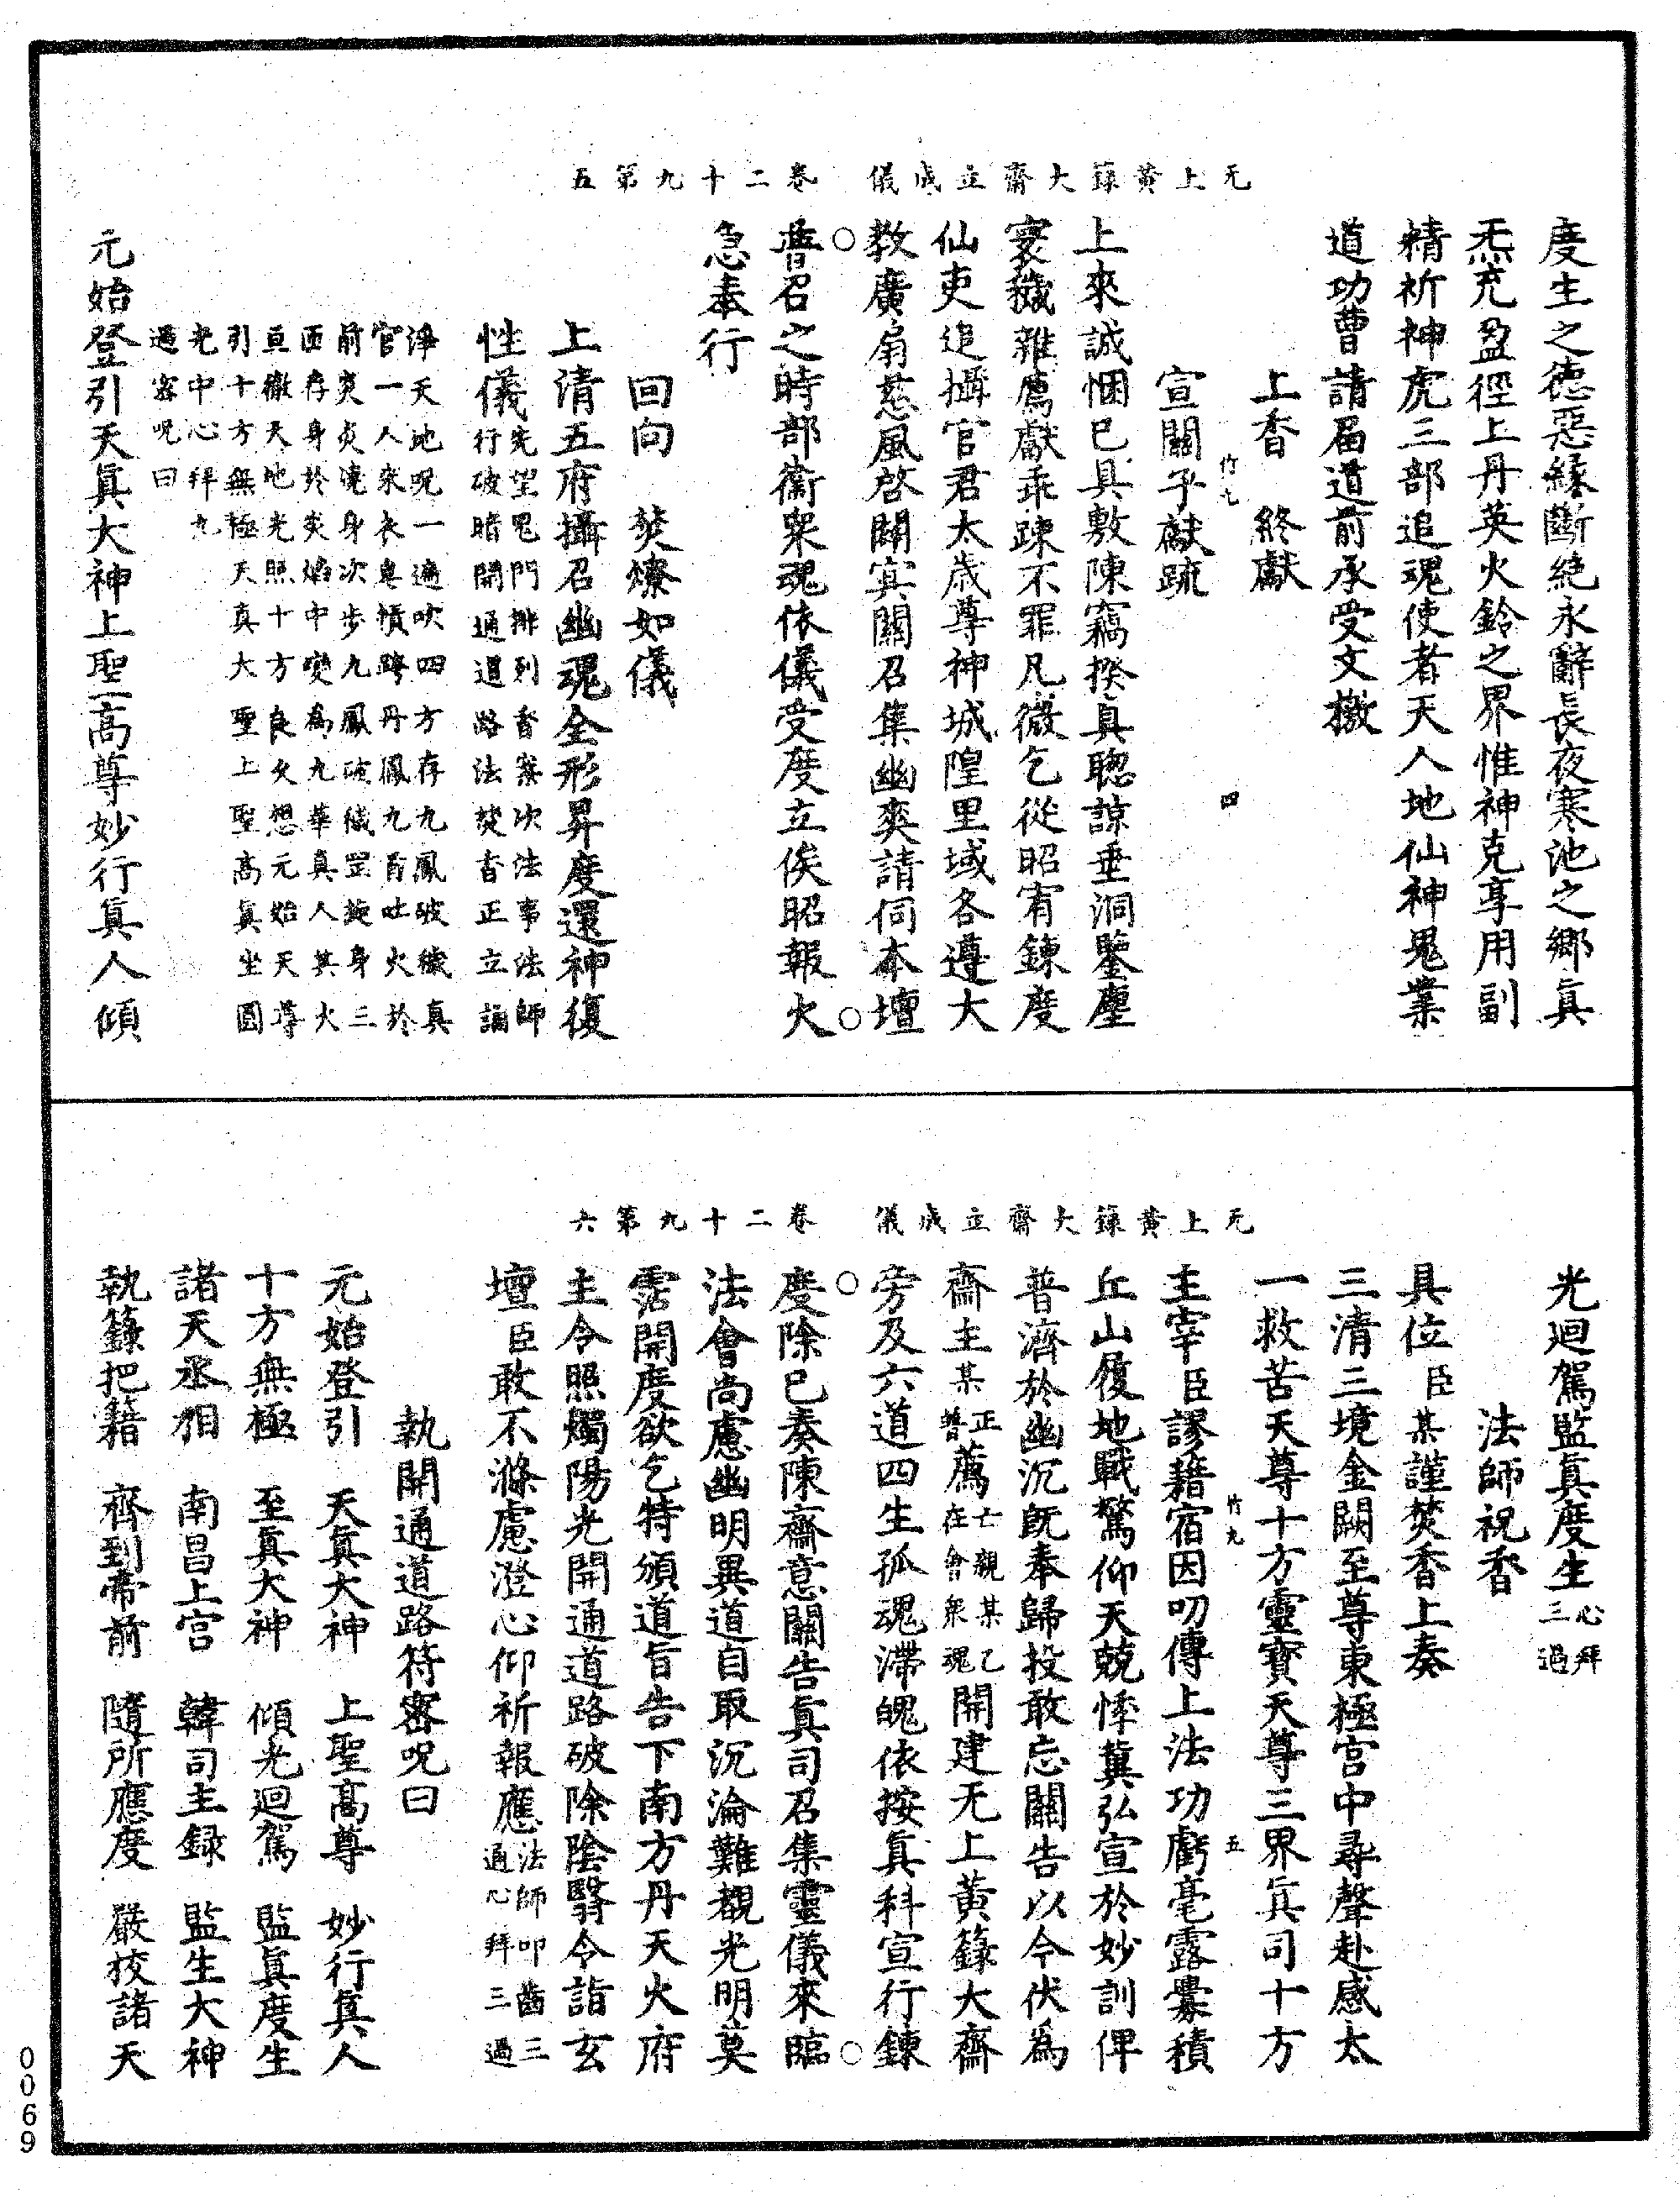 无上黃籙大齋立成儀　卷二十九第五
度生之德惡緣斷絶永辭長夜寒池之鄉眞
炁充盈徑上丹英火鈴之界惟神克享用副
精祈神虎三部追魂使者天人地仙神鬼業
道功曹請届道前承受文檄
上香　終獻
竹九　四
宣關乎獻疏
上來誠悃已具敷陳竊揆真聰諒垂洞鑒塵
寰穢雜薦獻乖踈不罪凡微乞從昭宥鍊度
仙吏追攝官君太歲尊神城隍里域各遵大
教廣扇慈風啓闢冥關召集幽爽請伺本壇
普召之時部衛衆魂依儀受度立俟昭報火
急奉行
回向　焚燎如儀
上清五府攝召幽魂全形昇度還神復
性儀先望鬼門排列香案次法事法師
行破暗開通道路法焚香正立誦
淨天地呪一遍吹四方存九鳳破穢真
官一人來衣皂幘跨丹鳳九首吐火於
前炎炎燒身次步九鳳破穢罡旋身三
匝存身於炎焰中變爲九華真人其火
亘徹天地光照十方良久想元始天尊
引十方無極天真大聖上聖高眞坐圓
光中心拜九
過密呪曰
元始登引天眞大神上聖高尊妙行眞人傾
无上黃籙大齋立成儀　卷二十九第六
光迴駕監眞度生心拜
三過
法師祝香
具位臣某謹焚香上奏
三清三境金闕至尊東極宫中尋聲赴感太
一救苦天尊十方靈寶天尊三界眞司十方
竹九　五
主宰臣謬藉宿因叨傳上法功虧毫露釁積
丘山履地戰驚仰天兢悸冀弘宣於妙訓俾
普濟於幽沉旣奉歸投敢忘關告以今伏爲
齋主某正薦亡親某乙
普在會衆魂開建无上黃籙大齋
旁及六道四生孤魂滯魄依按眞科宣行鍊
度除已奏陳齋意關告眞司召集靈儀來臨
法會尚慮幽明異道自取沉淪難覩光明莫
霑開度欲乞特頒道旨告下南方丹天火府
主令照燭陽光開通道路破除陰翳令詣玄
壇臣敢不滌慮澄心仰祈報應法師叩齒三
通心拜三過
執開通道路符密呪曰
元始登引　天眞大神　上聖高尊　妙行眞人
十方無極　至眞大神　傾光迴駕　監眞度生
諸天丞相　南昌上宫　韓司主録　監生大神
執籙把籍　齊到帝前　隨所應度　嚴校諸天
0069